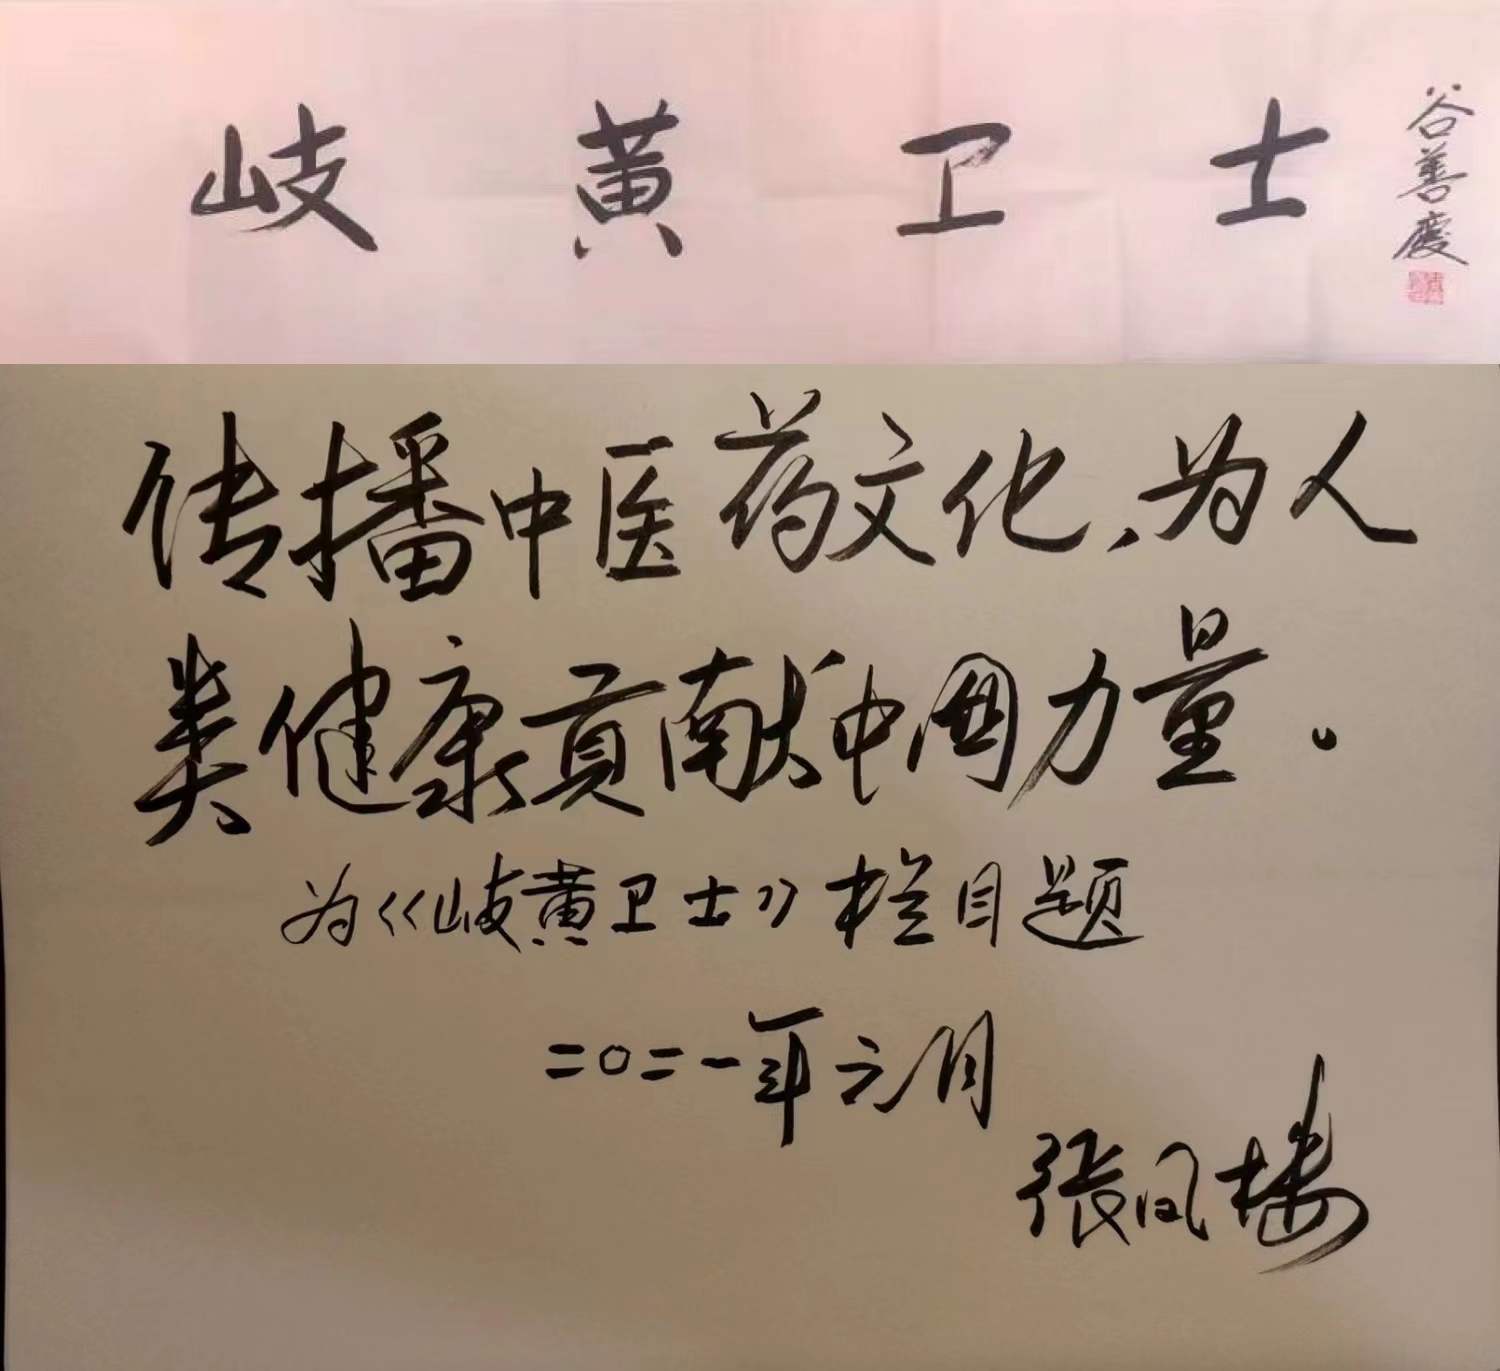 岐黄卫士
谷善庆
传播中医药文化，为人
类健康贡献中国力量。
为《岐黄卫士》栏目题
二〇二一年元月
张凤楼